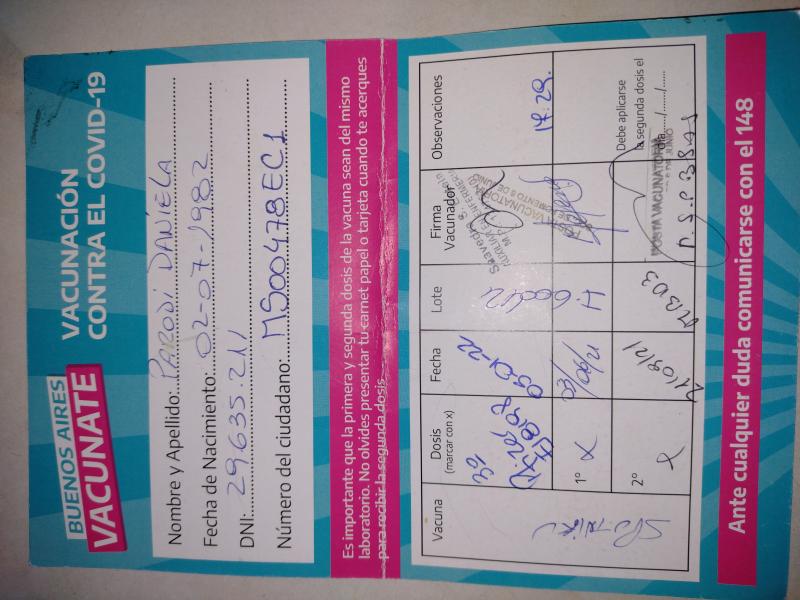 BUENOS AIRES
VACUNATE
VACUNACIÓN
CONTRA EL COVID-19
Nombre y Apellido: PARODI DANIELA
Fecha de Nacimiento: 02-07-1982
DNI: 29635.211
Número del ciudadano: MS00478EC1
Es importante que la primera y segunda dosis de la vacuna sean del mismo
laboratorio. No olvides presentar tu carnet papel o tarjeta cuando te acerques
para recibir la segunda dosis
Vacuna Dosis Fecha Lote Firma Observaciones
(marcar con x) Vacunador
3º 05-01-22 17:29.
1º X 03/06/21
2º X 21/08/21 Debe aplicarse
la segunda dosis el
día ...../...../.....
POSTA VACUNATORIA
Ante cualquier duda comunicarse con el 148